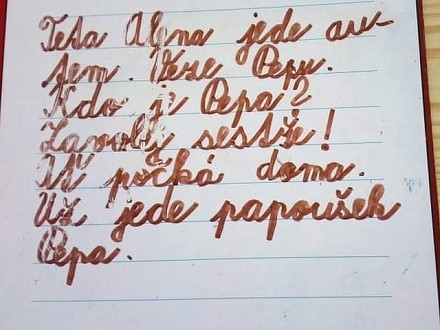 Teta Alena jede au-
tem. Veze Pepu.
Kdo je Pepa?
Zavolej sestře!
Ať počká doma.
Už jede papoušek
Pepa.